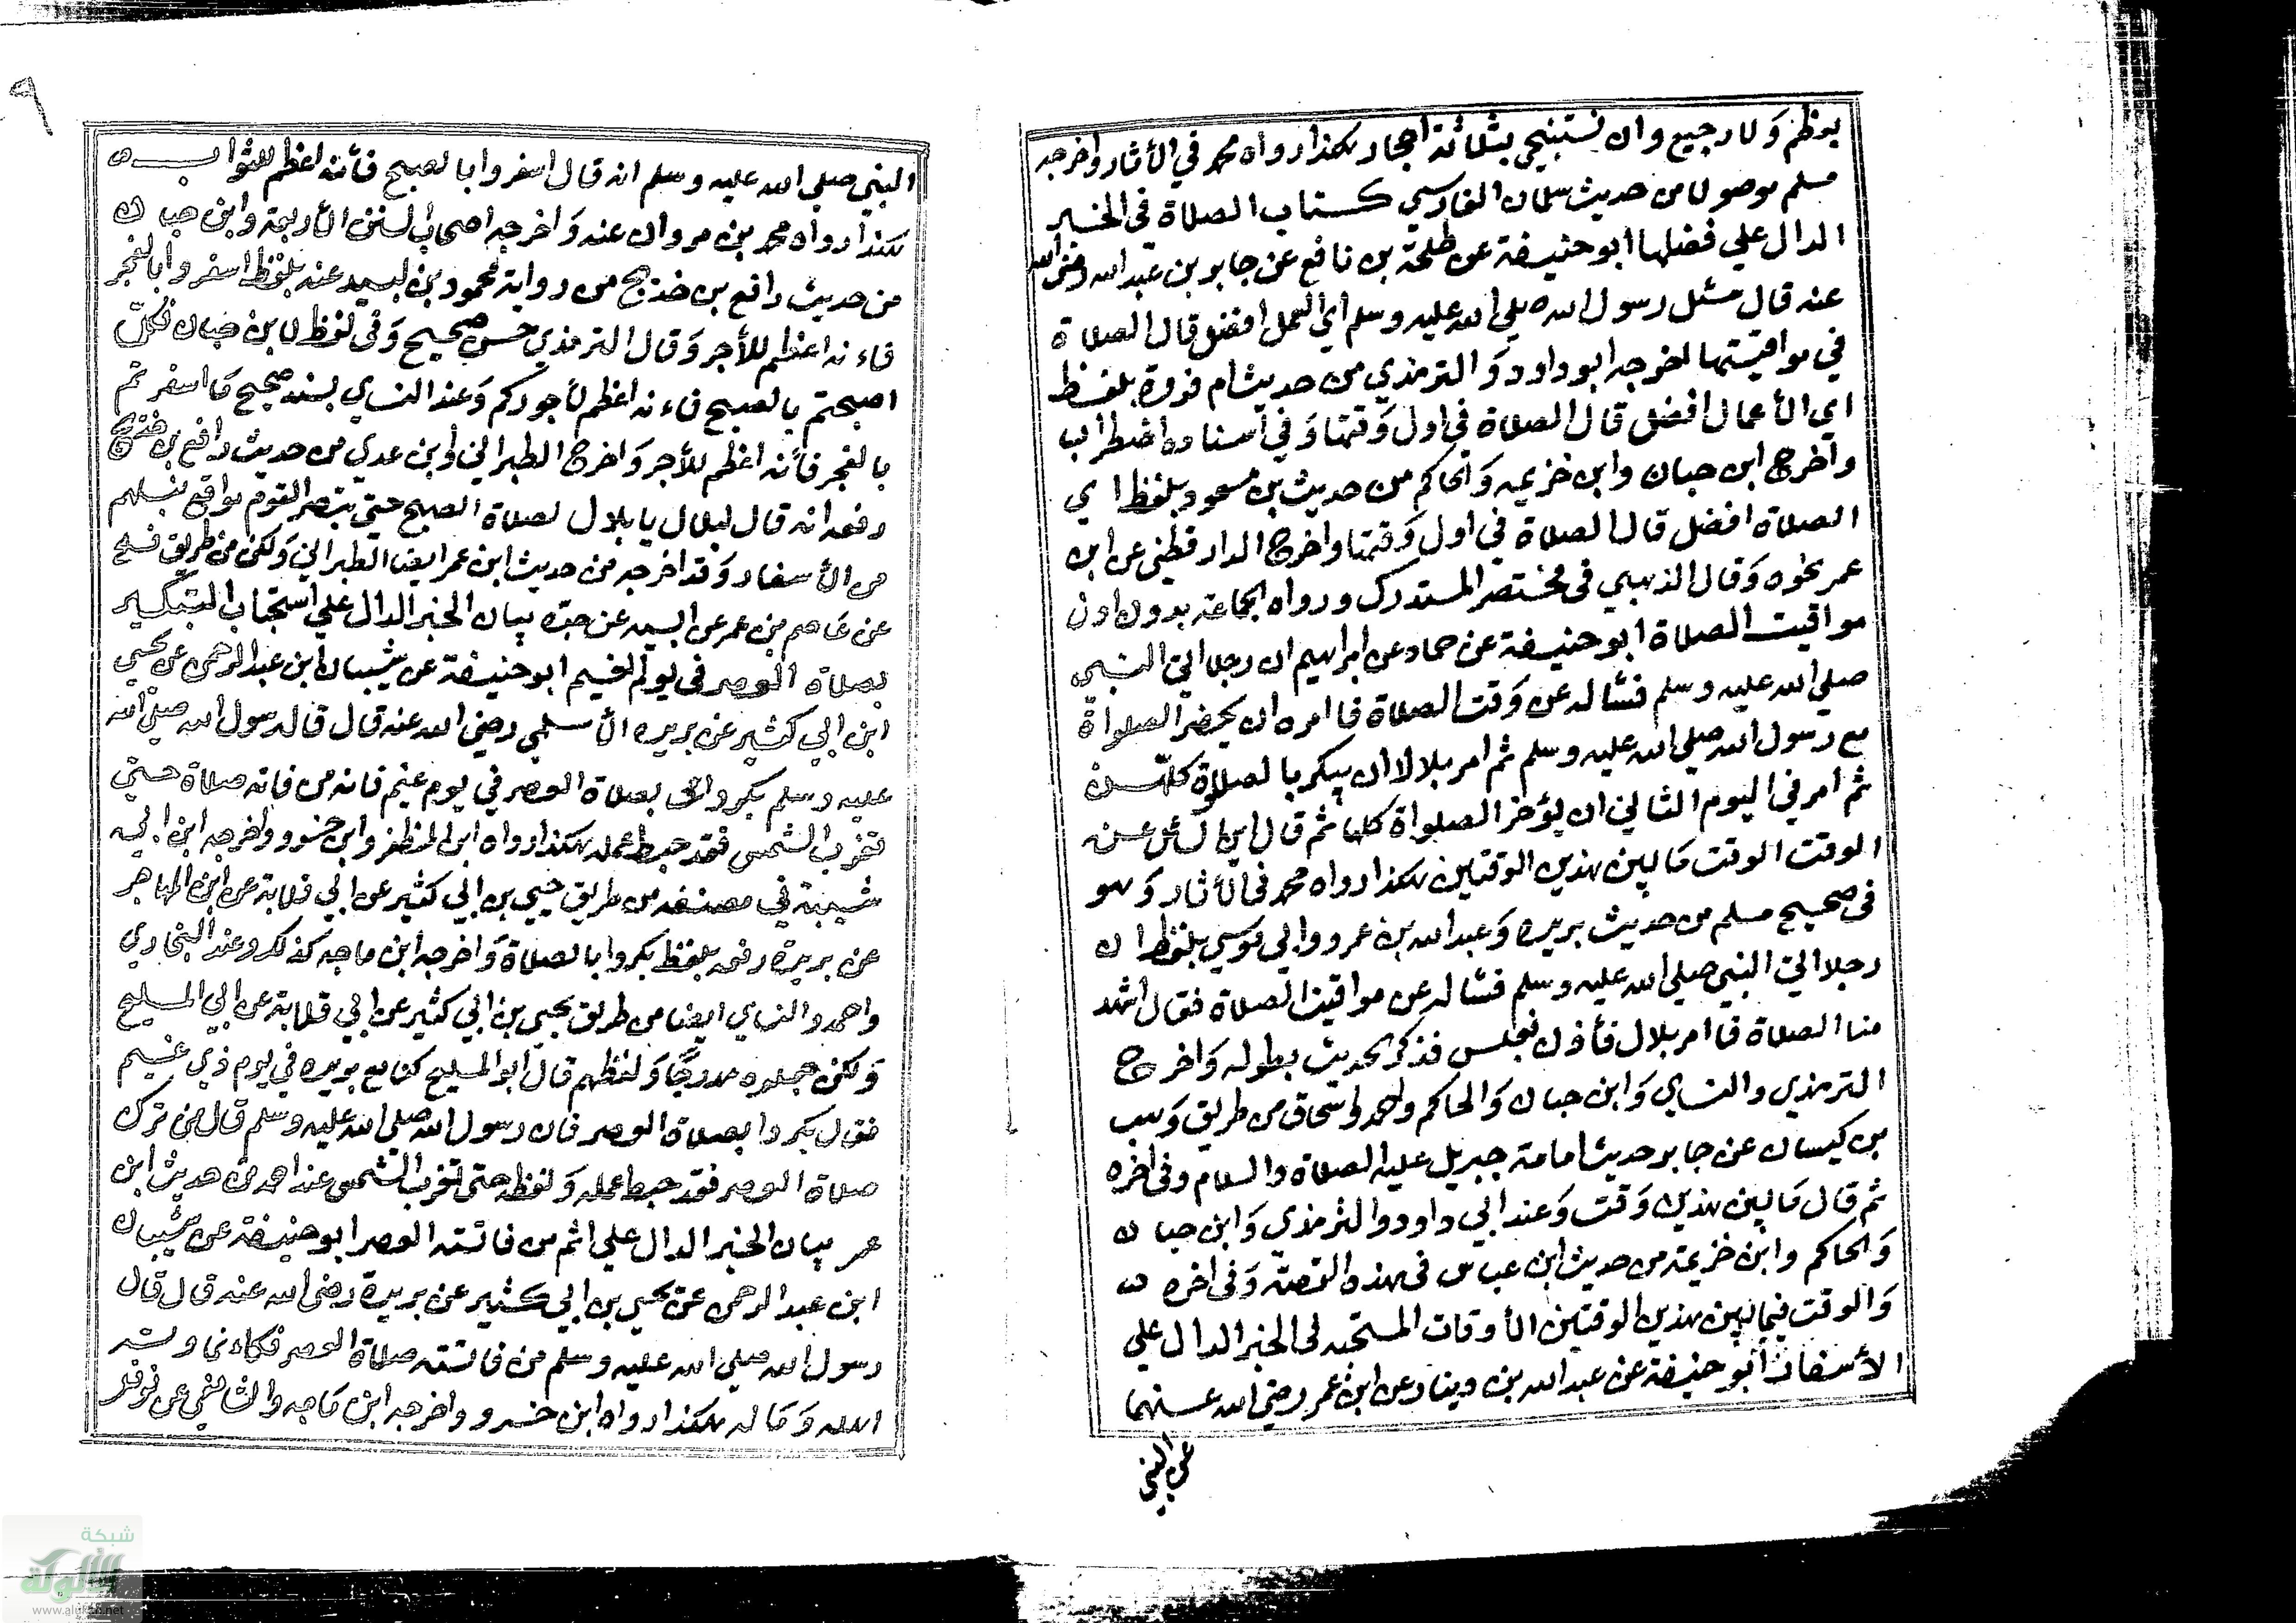 بعظم ولا رجيع وان نستنجي بثلاثة احجار هكذا رواه محمد في الأثار واخرجه
مسلم موصولا من حديث سلمان الفارسي كتاب الصلاة في الخبر
الدال علي فضلها ابو حنيفة عن طلحة بن نافع عن جابر بن عبد الله رضي الله
عنه قال سئل رسول الله صلي الله عليه وسلم اي العمل افضل قال الصلاة
في مواقيتها اخرجه ابو داود والترمذي من حديث ام فروة بلفظ
اي الأعمال افضل قال الصلاة في اول وقتها وفي اسناده اضطراب
واخرج ابن حبان وابن خزيمه والحاكم من حديث بن مسعود بلفظ اي
الصلاة افضل قال الصلاة في اول وقتها واخرج الدارقطني عن ابن
عمر نحوه وقال الذهبي في مختصر المستدرك ورواه الجماعة بدون اول
مواقيت الصلاة ابو حنيفة عن حماد عن ابراهيم ان رجلا اتي النبي
صلي الله عليه وسلم فسأله عن وقت الصلاة فامره ان يحضر الصلواة
مع رسول الله صلي الله عليه وسلم ثم امر بلالا ان يبكر بالصلوة كلهن
ثم امر في اليوم الثاني ان يؤخر الصلواة كلها ثم قال اين السائل عن
الوقت الوقت ما بين هذين الوقتين هكذا رواه محمد في الأثار وهو
في صحيح مسلم من حديث بريره وعبد الله بن عمرو وابي موسي بلفظ ان
رجلا اتي النبي صلي الله عليه وسلم فسأله عن مواقيت الصلاة فقال اشهد
منا الصلاة فامر بلال فأذن بغلس فذكر الحديث بطوله واخرج
الترمذي والنساي وابن حبان والحاكم واحمد واسحاق من طريق وهب
بن كيسان عن جابر حديث امامة جبريل عليه الصلاة والسلام وفي اخره
ثم قال ما بين هذين وقت وعند ابي داود والترمذي وابن حبان
والحاكم وابن خزيمة من حديث ابن عباس في هذه القصة وفي اخره
والوقت فيما بين هذين الوقتين الأوقات المستحبه في الخبر الدال علي
الأسفار ابو حنيفة عن عبد الله بن دينار عن ابن عمر رضي الله عنهما
عن النبي
٩
النبي صلي الله عليه وسلم انه قال اسفروا بالصبح فأنه اعظم للثواب
هكذا رواه محمد بن مروان عنه واخرجه اصحاب السنن الأربعة وابن حبان
من حديث رافع بن خديج من رواية محمود بن لبيد عنه بلفظ اسفروا بالفجر
فاءنه اعظم للأجر وقال الترمذي حسن صحيح وفي لفظ لابن حبان فكلما
اصبحتم بالصبح فاءنه اعظم لأجوركم وعند النساي بسند صحيح ما اسفرتم
بالفجر فأنه اعظم للأجر واخرج الطبراني وابن عدي من حديث رافع بن خديج
رفعه انه قال لبلال يا بلال لصلاة الصبح حتي يبصر القوم مواقع نبلهم
من الأسفار وقد اخرجه من حديث ابن عمر ايضا الطبراني ولكن من طريق
عن عاصم بن عمر عن ابيه عن جده بيان الخبر الدال علي استحباب التبكير
بصلاة العصر في يوم الغيم ابو حنيفة عن شيبان ابن عبد الرحمن عن يحيي
ابن ابي كثير عن بريره الأسلمي رضي الله عنه قال قال رسول الله صلي الله
عليه وسلم بكروا بصلاة العصر في يوم غيم فانه من فاته صلاة حتي
تغرب الشمس فقد حبط عمله هكذا رواه ابن المظفر وابن خسرو واخرجه ابن ابي
شيبة في مصنفه من طريق يحيي بن ابي كثير عن ابي قلابة عن ابن المهاجر
عن بريدة رفعه بلفظ بكروا بالصلاة واخرجه ابن ماجه كذلك وعند البخاري
واحمد والنساي ايضا من طريق يحيي بن ابي كثير عن ابي قلابة عن ابي المليح
ولكن جعلوه مدرجا ولفظهم قال ابو المليح كنا مع بريره في يوم ذي غيم
فقال بكروا بصلاة العصر فان رسول الله صلي الله عليه وسلم قال من ترك
صلاة العصر فقد حبط عمله ولفظه حتي تغرب الشمس عند احمد من حديث ابن
عمر بيان الخبر الدال علي اثم من فاتته العصر ابو حنيفة عن شيبان
ابن عبد الرحمن عن يحيي بن ابي كثير عن بريدة رضي الله عنه قال قال
رسول الله صلي الله عليه وسلم من فاتته صلاة العصر فكاءنما وتر
اهله وماله هكذا رواه ابن خسرو واخرجه ابن ماجه والشافعي عن نوفل
شبكة
الألوكة
www.alukah.net